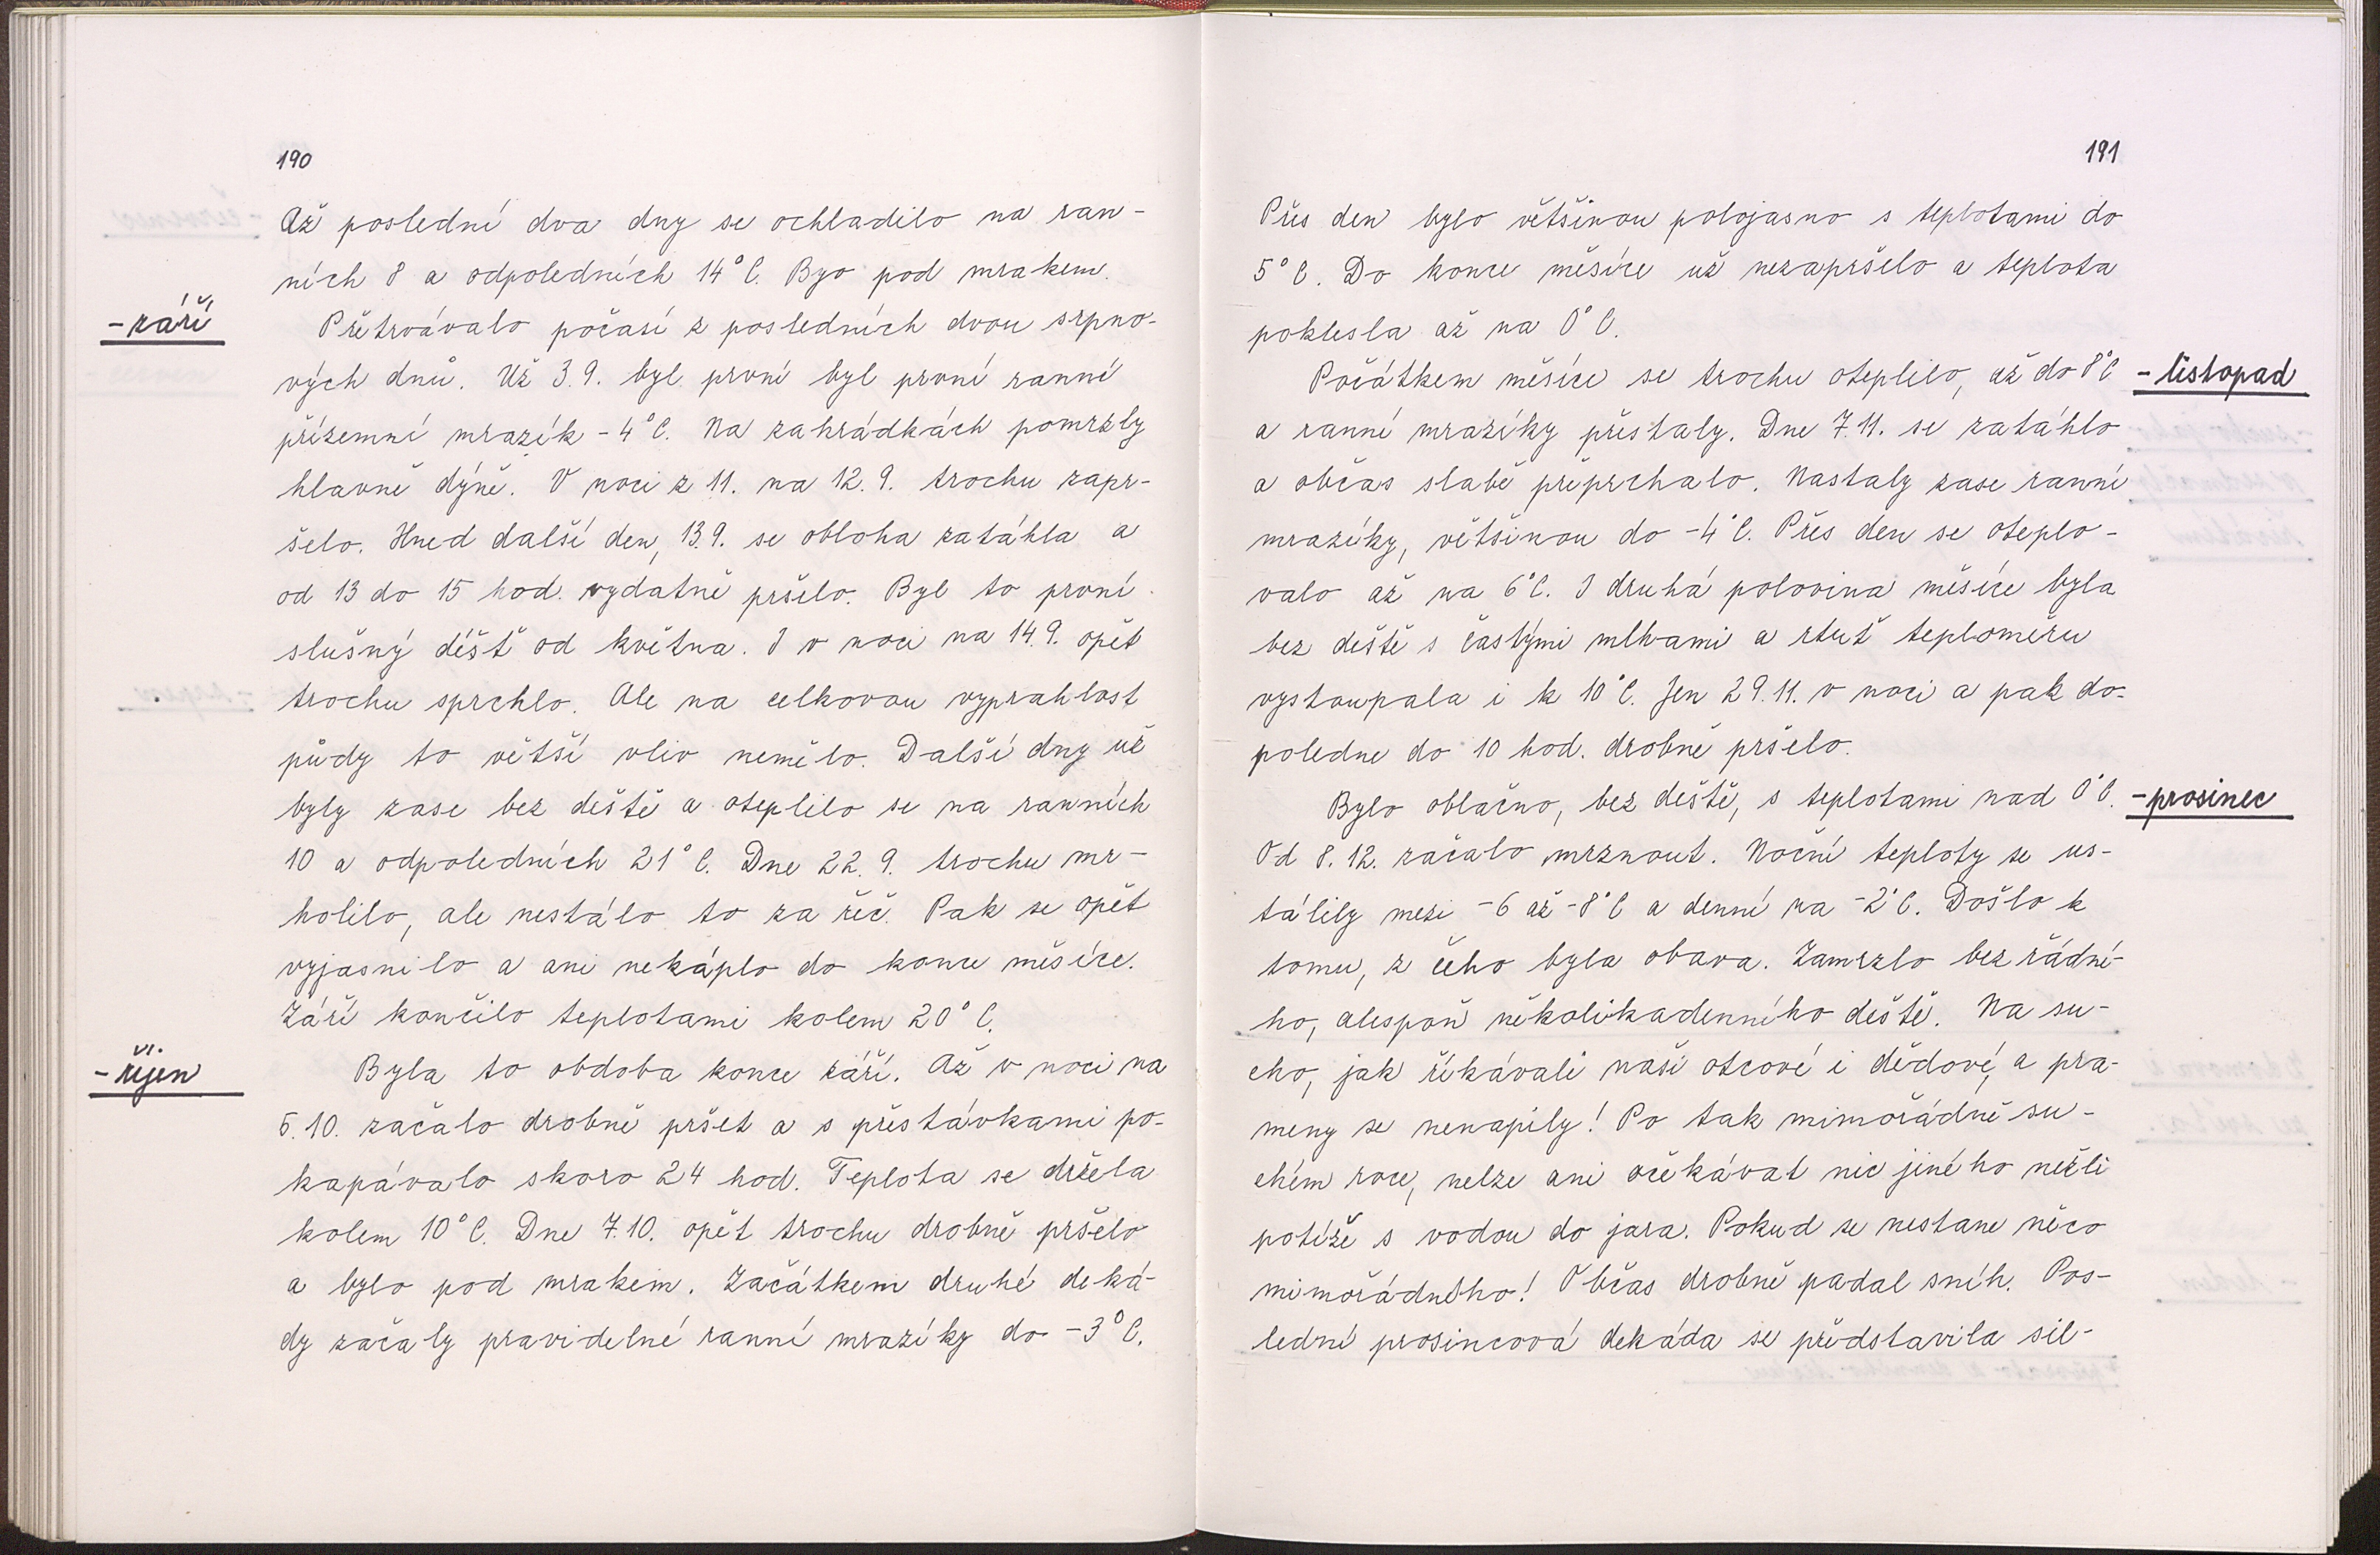 190
Až poslední dva dny se ochladilo na ran-
ních 8 a odpoledních 14°C. Byo pod mrakem.
- září
Přetrvávalo počasí z posledních dvou srpno-
vých dnů. Už 3.9. byl první byl první ranní
přízemní mrazík -4°C. Na zahrádkách pomrzly
hlavně dýně. V noci z 11. na 12.9. trochu zapr-
šelo. Hned další den, 13.9. se obloha zatáhla a
od 13 do 15 hod. vydatně pršelo. Byl to první
slušný déšť od května. I v noci na 14.9. opět
trochu sprchlo. Ale na celkovou vyprahlost
půdy to větší vliv nemělo. Další dny už
byly zase bez deště a oteplilo se na ranních
10 a odpoledních 21°C. Dne 22.9. trochu mr-
holilo, ale nestálo to za řeč. Pak se opět
vyjasnilo a ani nekáplo do konce měsíce.
Září končilo teplotami kolem 20°C.
- říjen
Byla to obdoba konce září. Až v noci na
5.10. začalo drobně pršet a s přestávkami po-
kapávalo skoro 24 hod. Teplota se držela
kolem 10°C. Dne 7.10. opět trochu drobně pršelo
a bylo pod mrakem. Začátkem druhé deká-
dy začaly pravidelné ranní mrazíky do -3°C.
191
Přes den bylo většinou polojasno s teplotami do
5°C. Do konce měsíce už nezapršelo a teplota
poklesla až na 0°C.
Počátkem měsíce se trochu oteplilo, až do 8°C
- listopad
a ranní mrazíky přestaly. Dne 7.11. se zatáhlo
a občas slabě přeprchalo. Nastaly zase ranní
mrazíky, většinou do -4°C. Přes den se oteplo-
valo až na 6°C. I druhá polovina měsíce byla
bez deště s častými mlhami a rtuť teploměru
vystoupala i k 10°C. Jen 29.11. v noci a pak do-
poledne do 10 hod. drobně pršelo.
Bylo oblačno, bez deště, s teplotami nad 0°C.
- prosinec
Od 8.12. začalo mrznout. Noční teploty se us-
tálily mezi -6 až -8°C a denní na -2°C. Došlo k
tomu, z čeho byla obava. Zamrzlo bez řádné-
ho, alespoň několikadenního deště. Na su-
cho, jak říkávali naši otcové i dědové, a pra-
meny se nenapily! Po tak mimořádně su-
chém roce, nelze ani očekávat nic jiného nežli
potíže s vodou do jara. Pokud se nestane něco
mimořádného! Občas drobně padal sníh. Pos-
lední prosincová dekáda se představila sil-